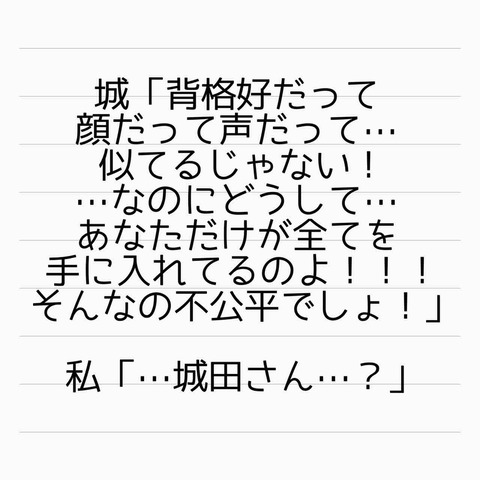 城「背格好だって
顔だって声だって…
似てるじゃない！
…なのにどうして…
あなただけが全てを
手に入れてるのよ！！！
そんなの不公平でしょ！」
私「…城田さん…？」